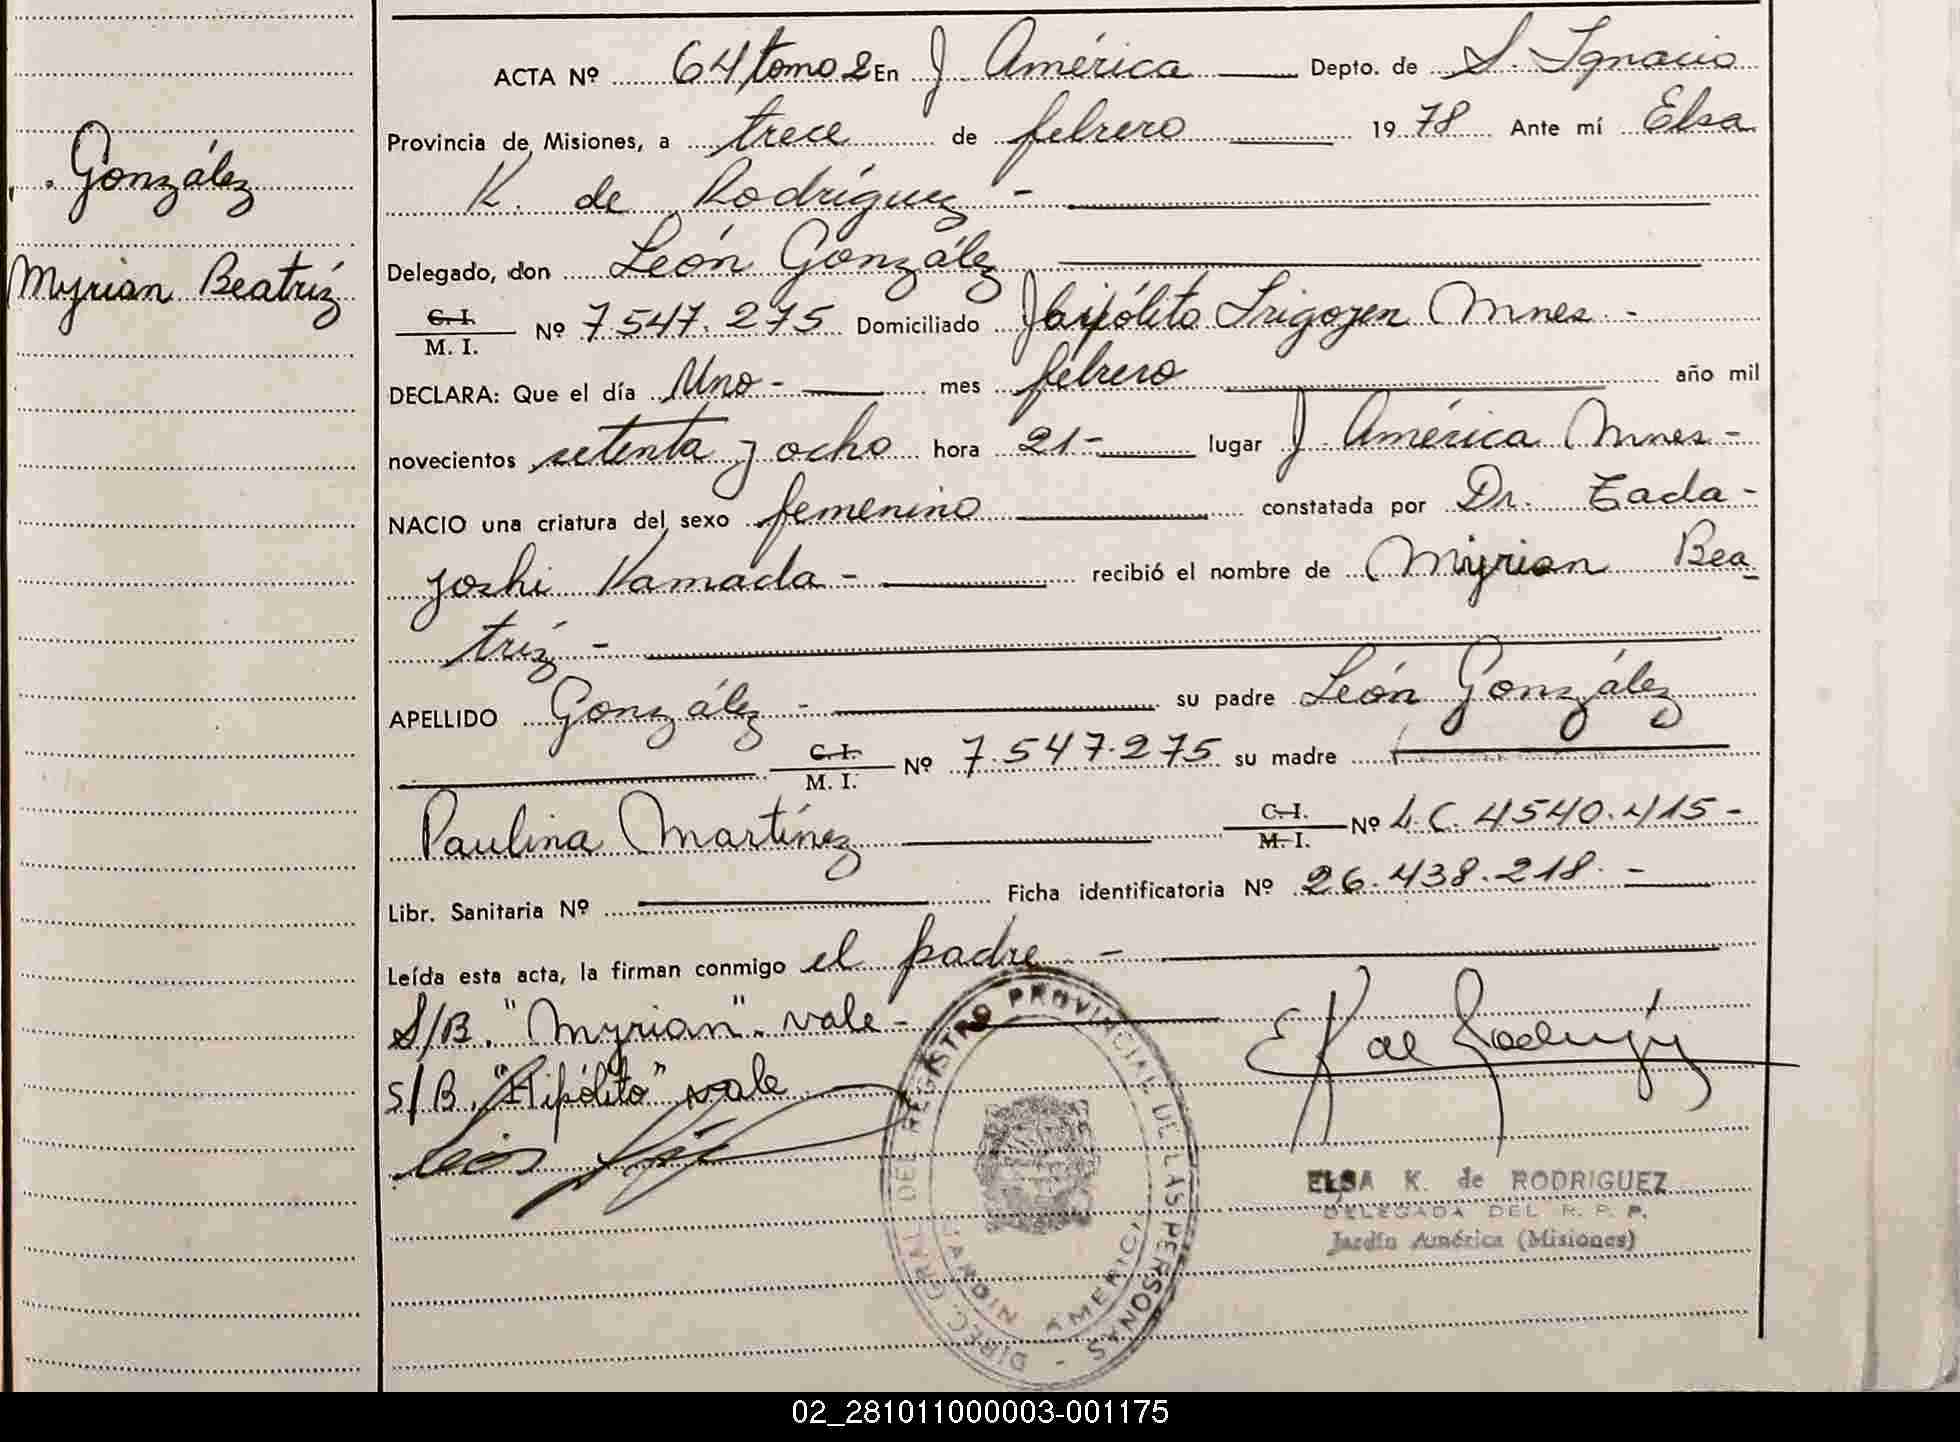 ACTA Nº 64 tomo 2 En J. América Depto. de S. Ignacio
Provincia de Misiones, a trece de febrero 1978 Ante mí Elsa
K. de Rodríguez -
González
Myrian Beatríz
Delegado, don León González
C. I. / M. I. Nº 7.547.275 Domiciliado Hipólito Irigoyen Mnes. -
DECLARA: Que el día Uno - mes febrero año mil
novecientos setenta y ocho hora 21 - lugar J. América Mnes -
NACIO una criatura del sexo femenino constatada por Dr. Tada-
yoshi Kamada - recibió el nombre de Myrian Bea
tríz -
APELLIDO González - su padre León González
C. I. / M. I. Nº 7.547.275 su madre
Paulina Martínez C. I. / M. I. Nº L.C. 4540.415 -
Libr. Sanitaria Nº Ficha identificatoria Nº 26.438.218. -
Leída esta acta, la firman conmigo el padre -
S/B. "Myrian". vale -
S/B. "Hipólito" vale
León
E K de Rodríguez
ELSA K. de RODRIGUEZ
DELEGADA DEL R. P. P.
Jardín América (Misiones)
DIREC. GRAL. DEL REGISTRO PROVINCIAL DE LAS PERSONAS -
JARDIN AMERICA
02_281011000003-001175